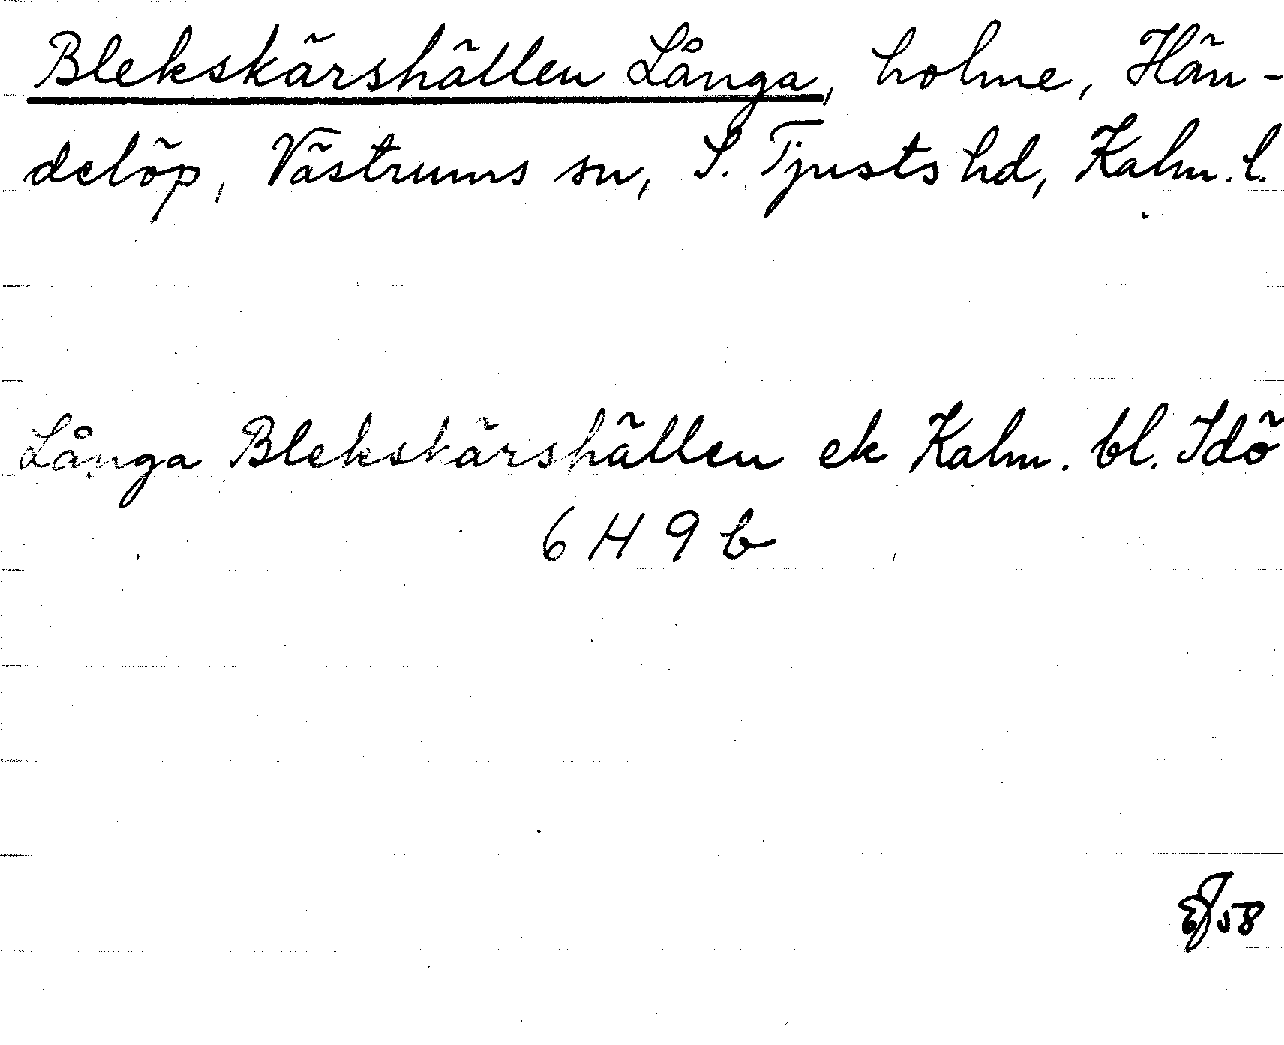 Blekskärshällen Långa, holme, Hän-
delöp, Västrums sn, S. Tjusts hd, Kalm. l.
Långa Blekskärshällen ek Kalm. bl. Idö
6 H 9 b
58